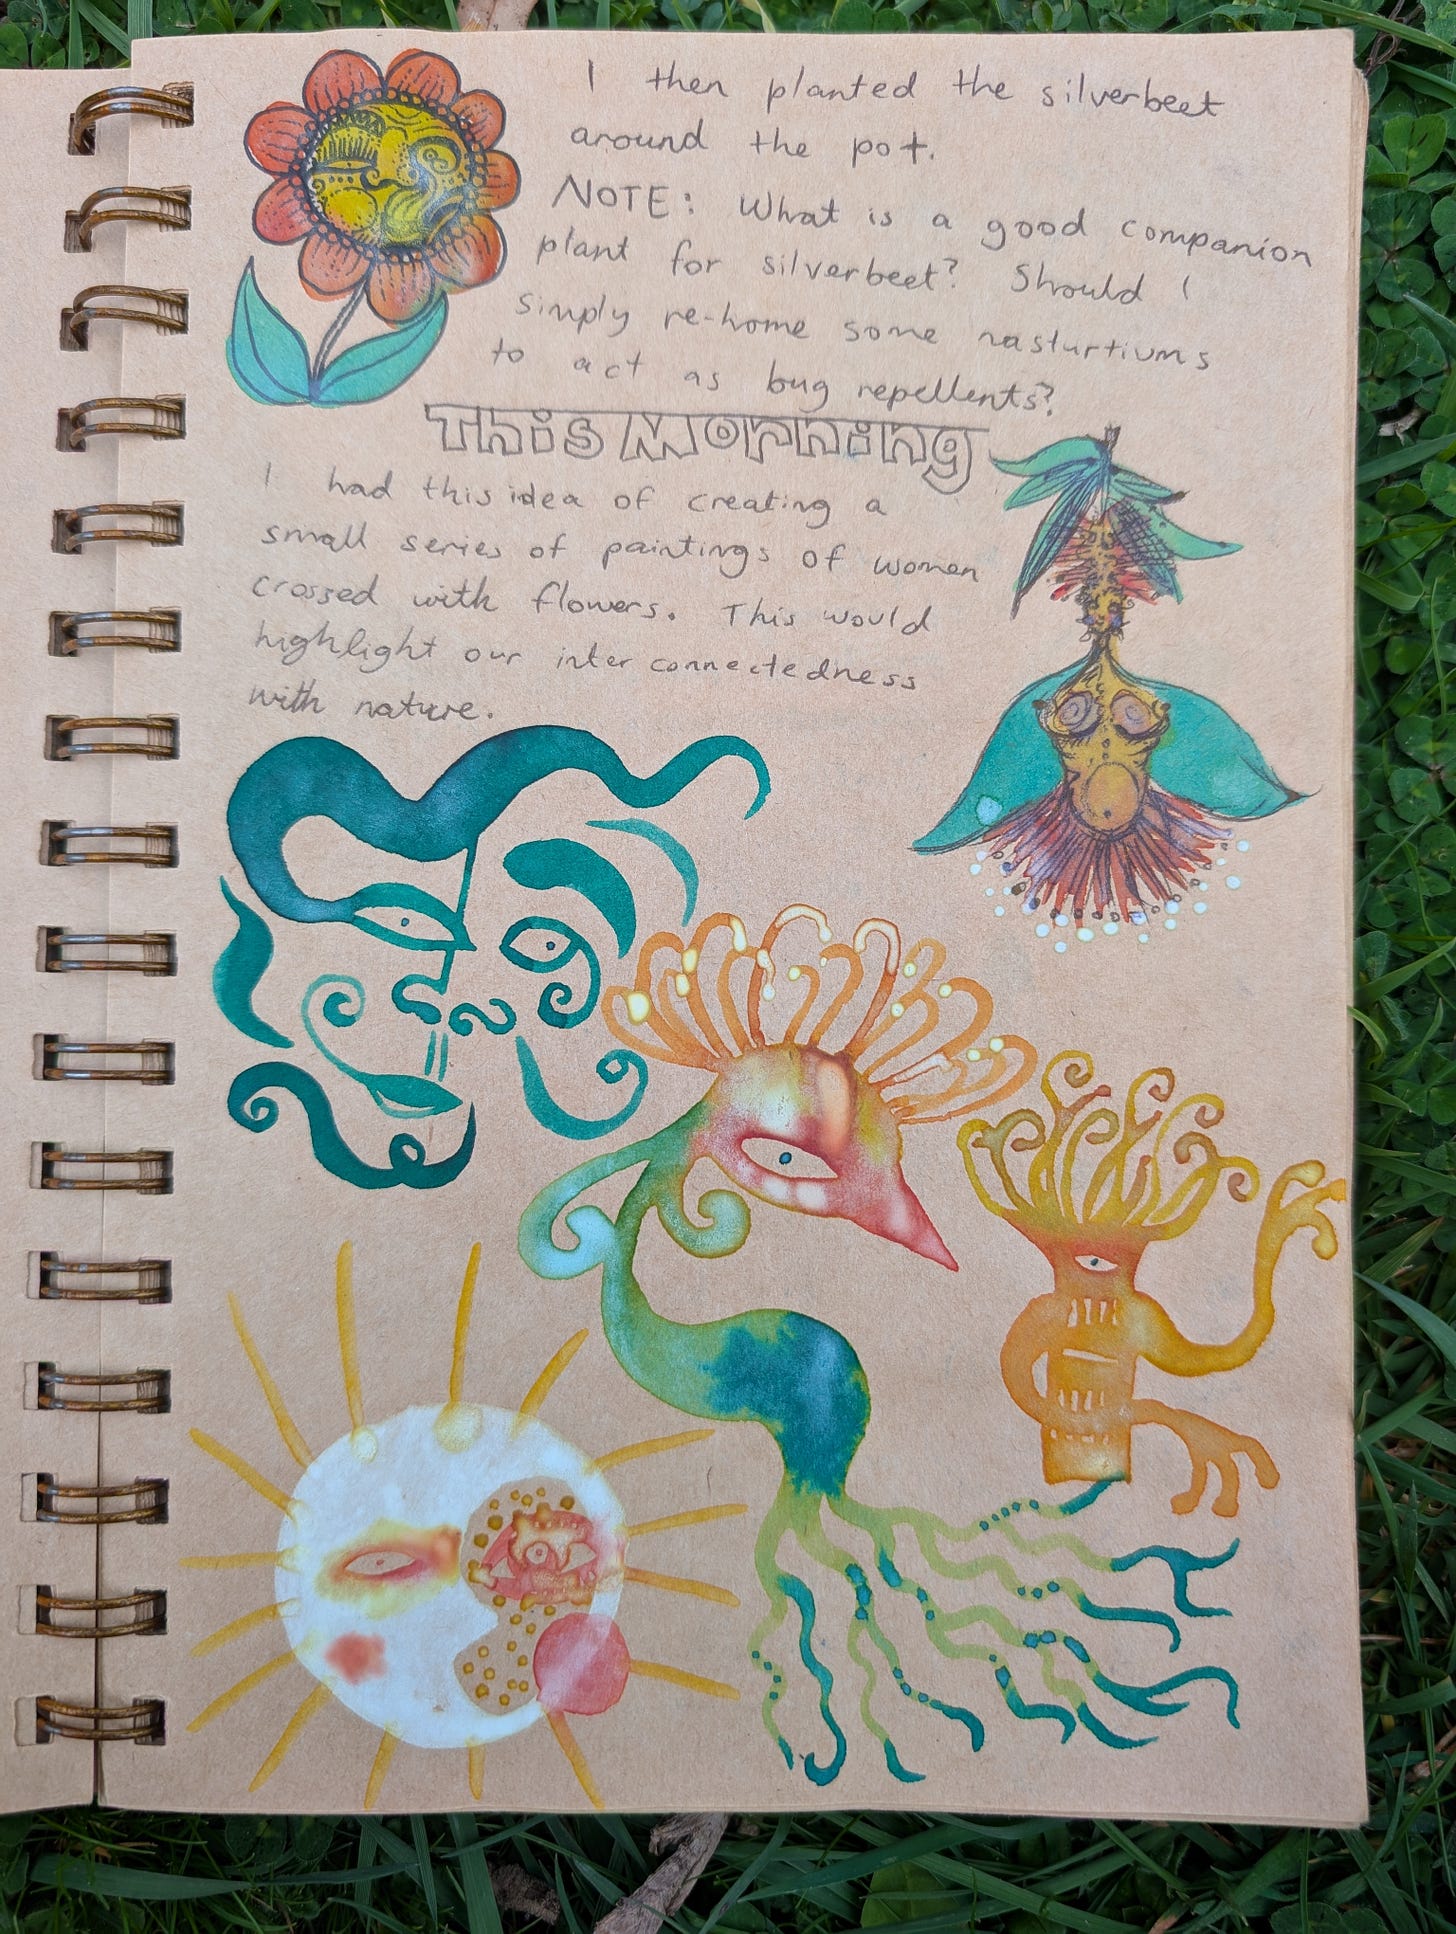 I then planted the silverbeet
around the pot.
NOTE: What is a good companion
plant for silverbeet? Should I
simply re-home some nasturtiums
to act as bug repellents?
This Morning
I had this idea of creating a
small series of paintings of women
crossed with flowers. This would
highlight our inter connectedness
with nature.